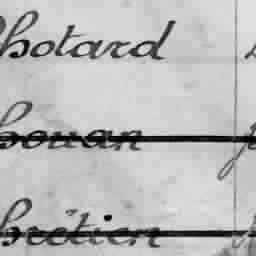 hotard
houan
hrétien